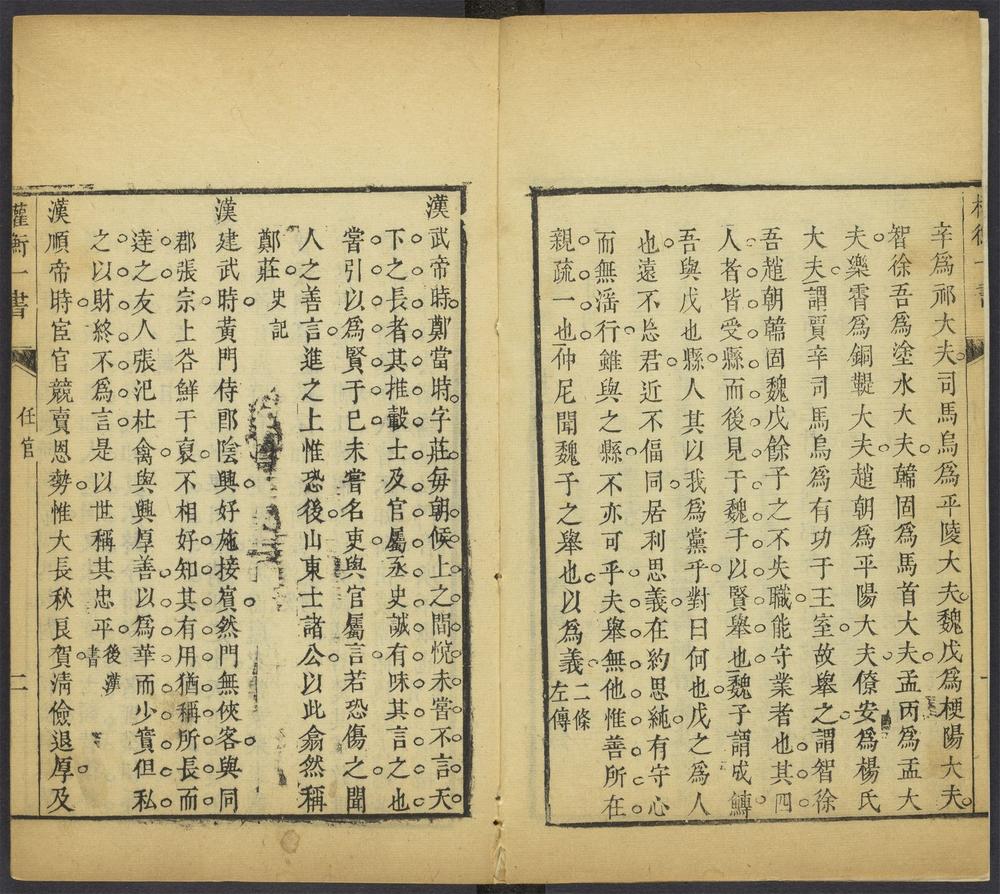 辛爲祁大夫司馬烏爲平陵大夫魏戊爲梗陽大夫
智徐吾爲塗水大夫韓固爲馬首大夫孟丙爲孟大
夫樂霄爲銅鞮大夫趙朝爲平陽大夫僚安爲楊氏
大夫謂賈辛司馬烏爲有功于王室故舉之謂智徐
吾趙朝韓固魏戊餘子之不失職能守業者也其四
人者皆受縣而後見于魏子以賢舉也魏子謂成鱄
吾與戊也縣人其以我爲黨乎對曰何也戊之爲人
也遠不忘君近不偪同居利思義在約思純有守心
而無淫行雖與之縣不亦可乎夫舉無他惟善所在
親疏一也仲尼聞魏子之舉也以爲義二條左傳
漢武帝時鄭當時字莊毎朝候上之間悅未嘗不言天
下之長者其推轂士及官屬丞史誠有味其言之也
嘗引以爲賢于已未嘗名吏與官屬言若恐傷之聞
人之善言進之上惟恐後山東士諸公以此翕然稱
鄭莊史記
漢建武時黃門侍郎陰興好施接賓然門無俠客與同
郡張宗上谷鮮于裒不相好知其有用猶稱所長而
逹之友人張汜杜禽與興厚善以爲華而少實但私
之以財終不爲言是以世稱其忠平後漢書
漢順帝時宦官競賣恩勢惟大長秋良賀清儉退厚及
權衡一書
任官
二